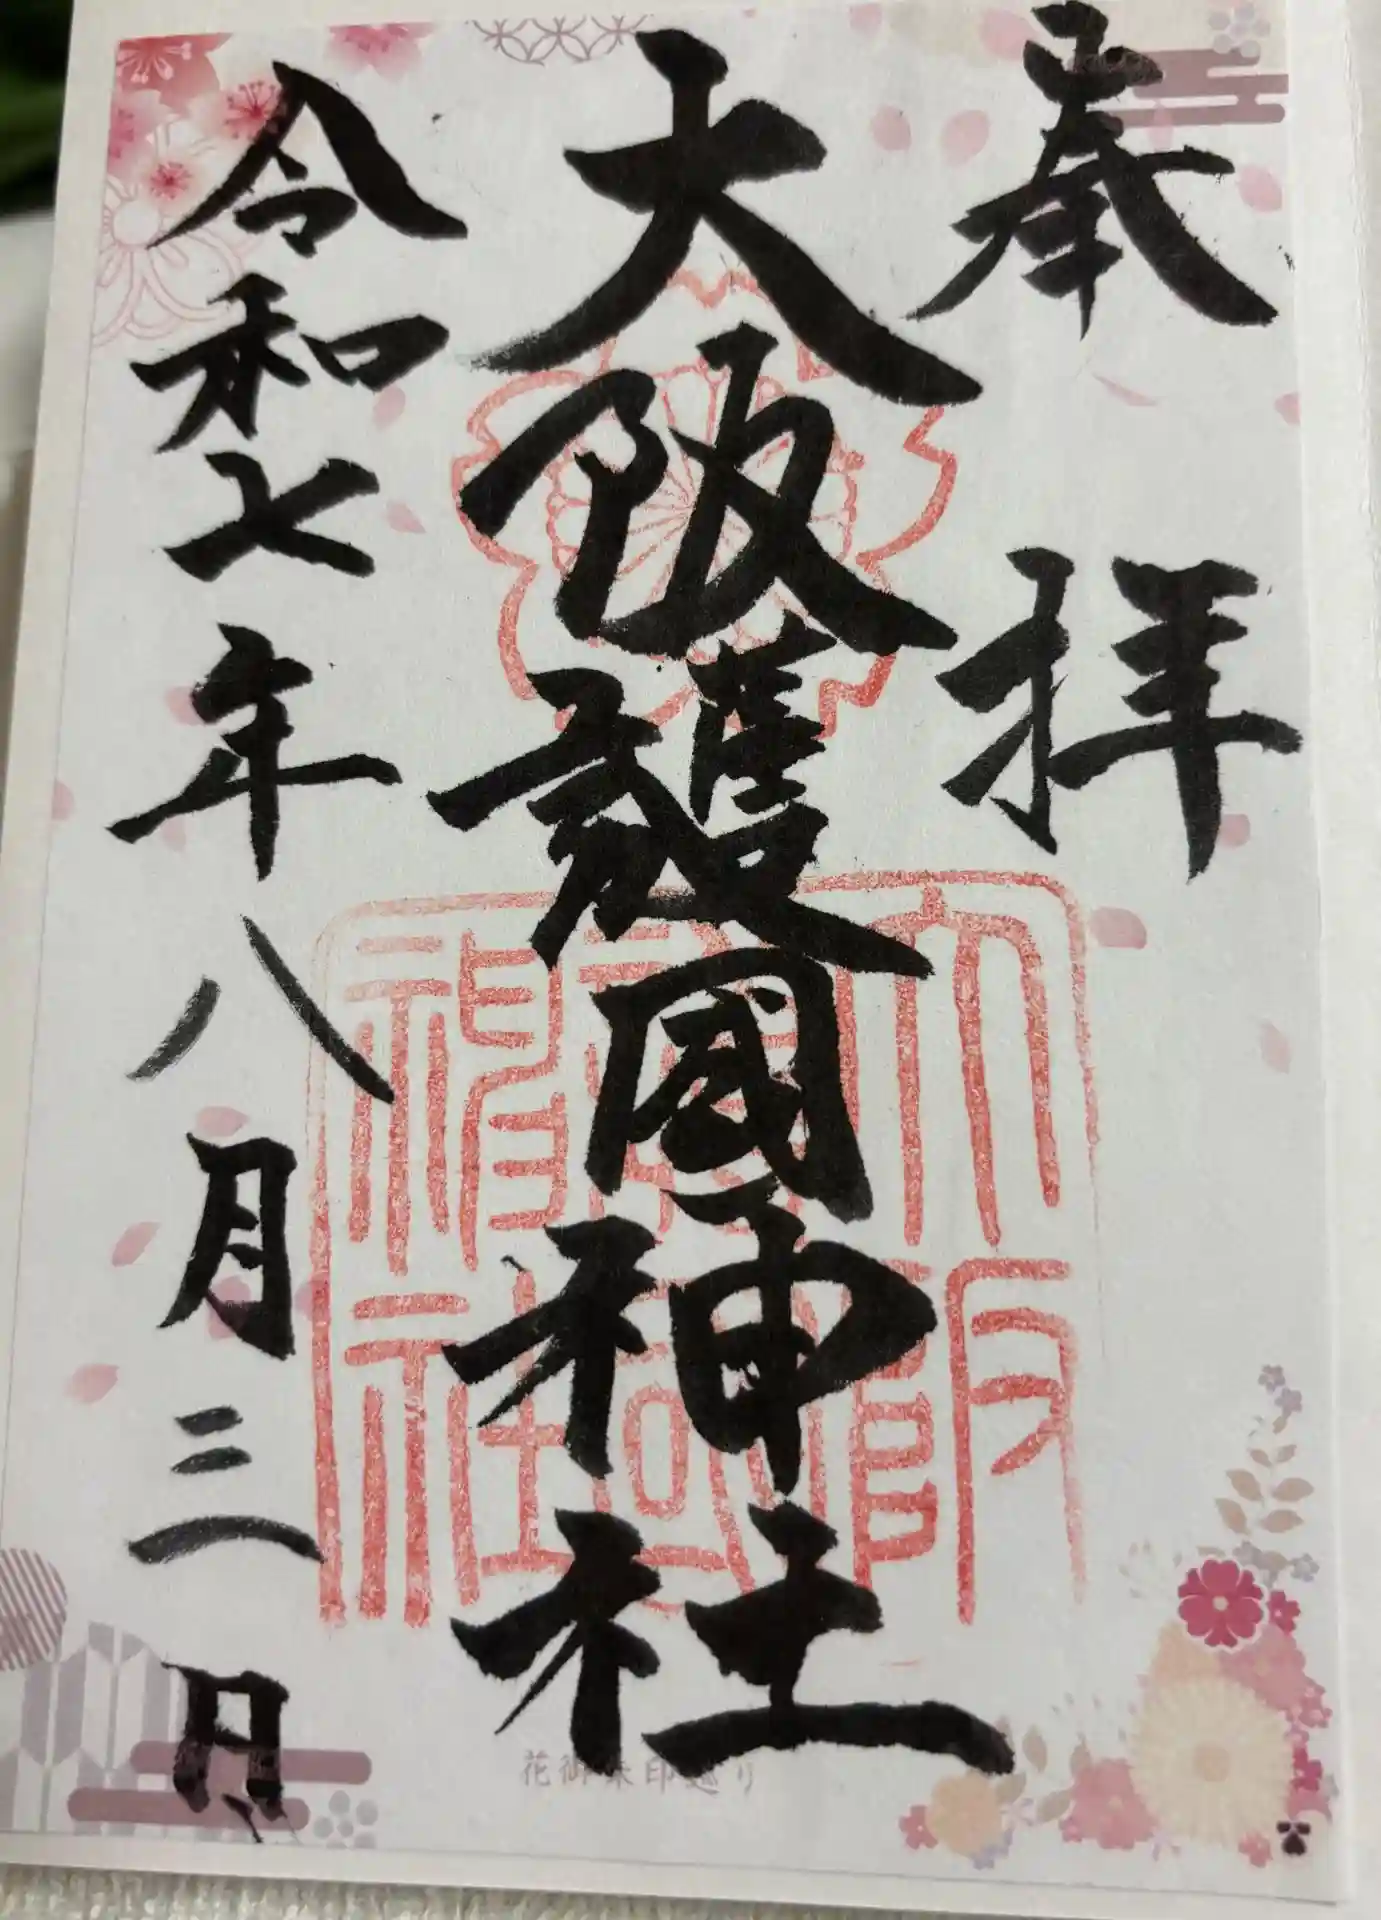 奉拝
大阪護國神社
令和七年八月三日
大阪護國神社
花御朱印巡り